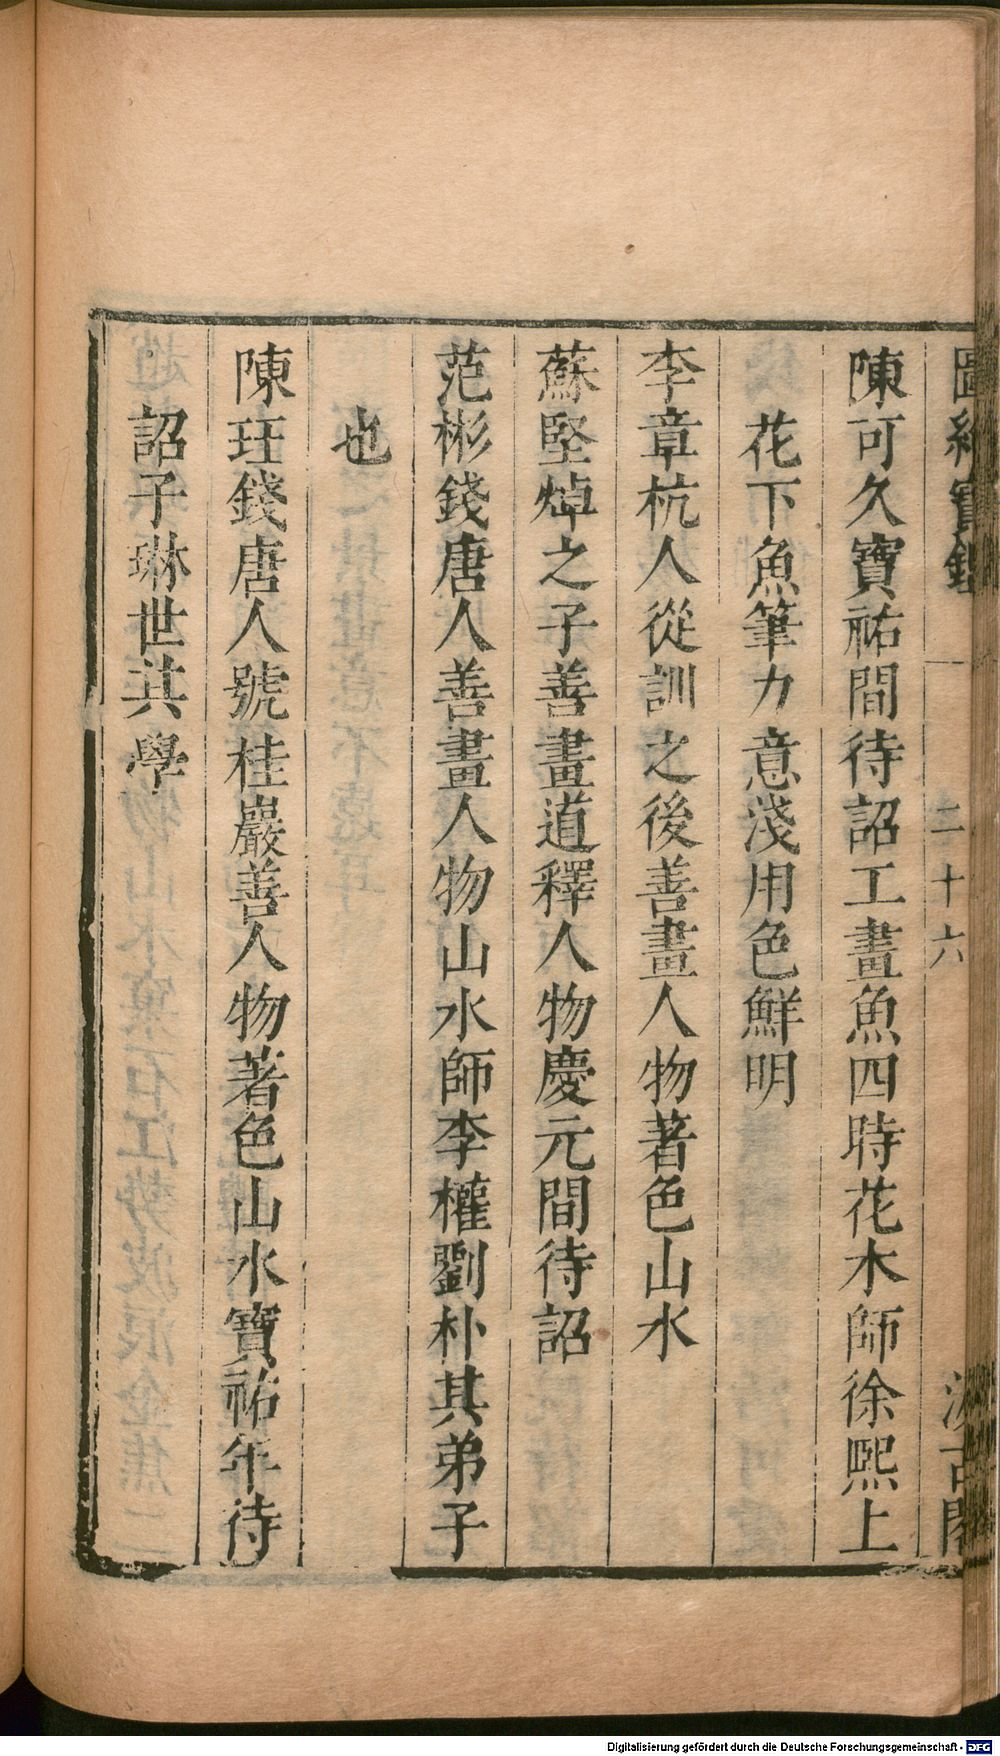 圖繪寶鑑
二十六
汲古閣
陳可久寶祐間待詔工畫魚四時花木師徐熙上
花下魚筆力意淺用色鮮明
李章杭人從訓之後善畫人物著色山水
蘇堅焯之子善畫道釋人物慶元間待詔
范彬錢唐人善畫人物山水師李權劉朴其弟子
也
陳珏錢唐人號桂巖善人物著色山水寶祐年待
詔子琳世其學
Digitalisierung gefördert durch die Deutsche Forschungsgemeinschaft - DFG